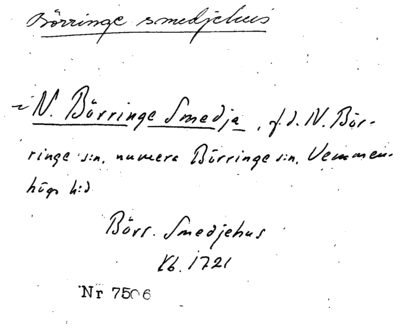 Börringe smedjehus
~ N. Börringe Smedja, f.d. N. Bör-
ringe s:n, numera Börringe s:n, Vemmen-
högs h:d
Börr. Smedjehus
Kb. 1721
Nr 7506